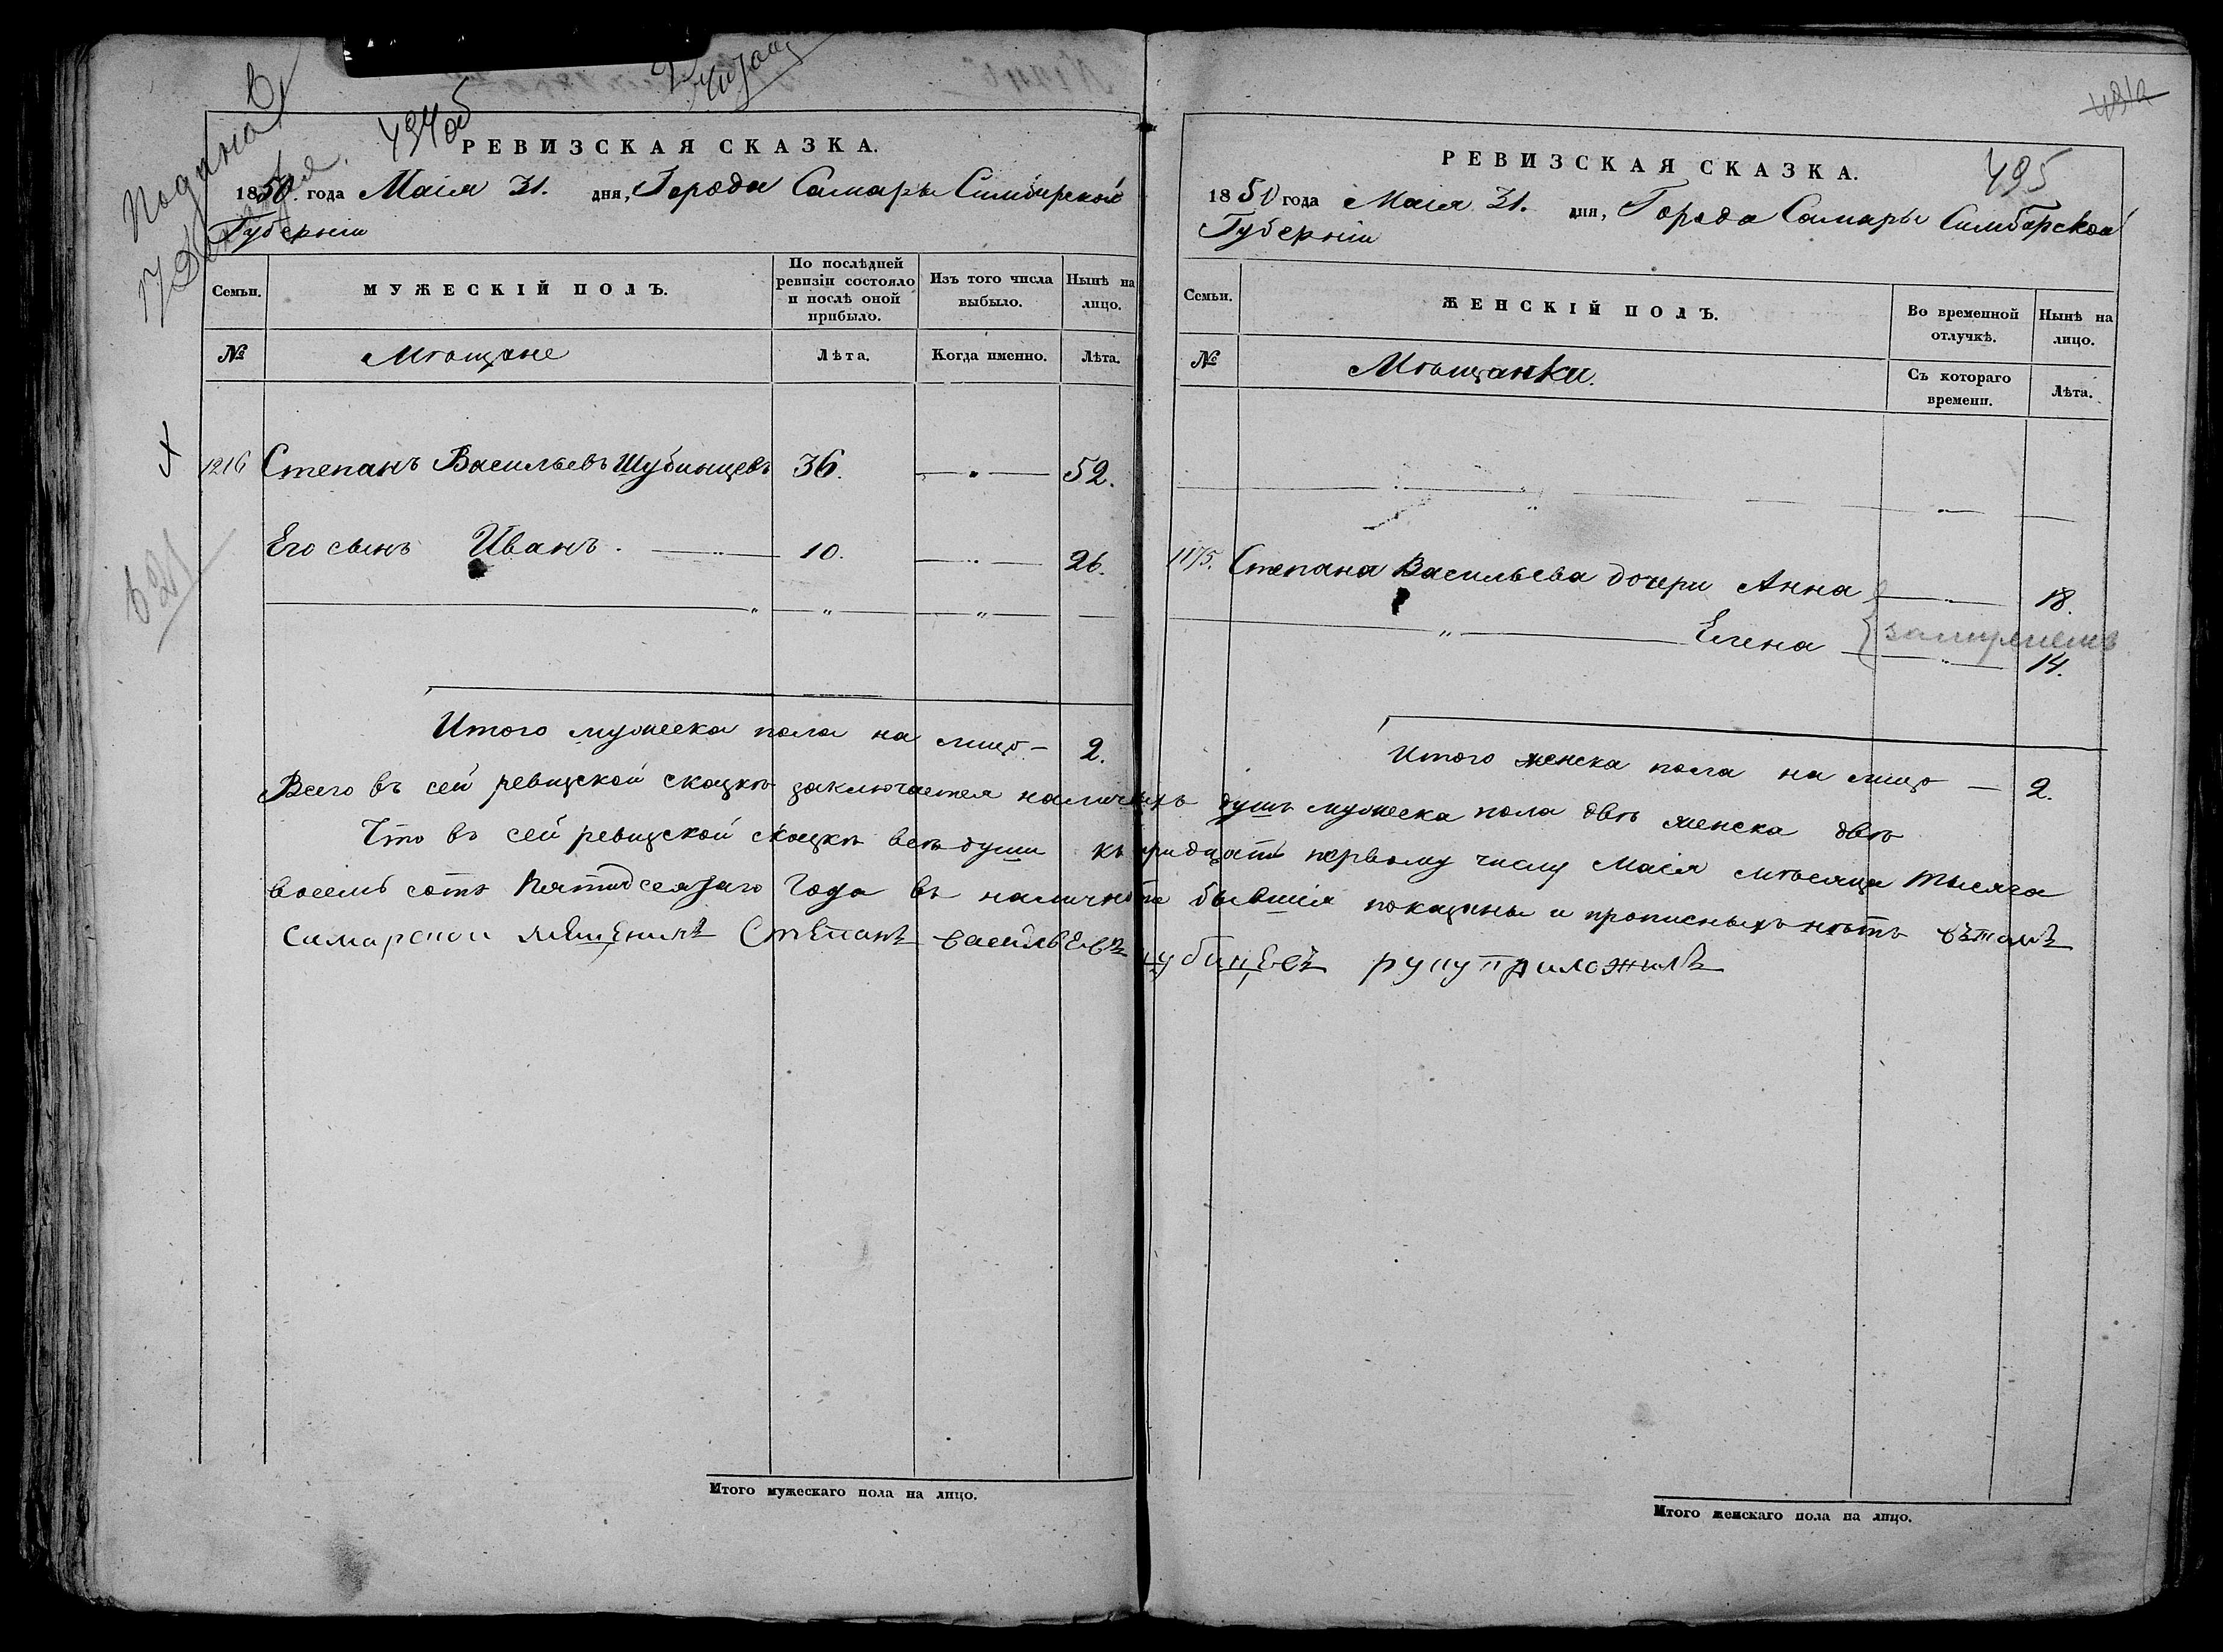 494 об
РЕВИЗСКАЯ СКАЗКА.
1850. года Маія 31. дня, Города Самары Симбирской
Губерніи
Семьи.
МУЖЕСКІЙ ПОЛЪ.
По послѣдней ревизіи состояло и послѣ оной прибыло.
Изъ того числа выбыло.
Нынѣ на лицо.
№
Мѣщане
Лѣта.
Когда именно.
Лѣта.
1216 Степанъ Васильевъ Шубинцевъ 36. 52.
Его сынъ Иванъ. 10. 26.
621
Итого мужеска пола на лицо - 2.
495
РЕВИЗСКАЯ СКАЗКА.
1850 года Маія 31. дня, Города Самары Симбирской
Губерніи
Семьи.
ЖЕНСКІЙ ПОЛЪ.
Во временной отлучкѣ.
Нынѣ на лицо.
№
Мѣщанки.
Съ котораго времени.
Лѣта.
1175. Степана Васильева дочери Анна 18.
замужемъ
Елена 14.
Итого женска пола на лицо - 2.
Всего въ сей ревизской сказкѣ заключается наличныхъ душъ мужеска пола двѣ женска двѣ
Что въ сей ревизской сказкѣ всѣ души къ тридцать первому числу Маія мѣсяца тысяча
восемь сотъ пятидесятаго года въ наличности бывшія показаны и прописныхъ нѣтъ вътомъ
самарской мешенинъ Степанъ васильевъ шубинцевъ руку приложилъ
Итого мужескаго пола на лицо.
Итого женскаго пола на лицо.